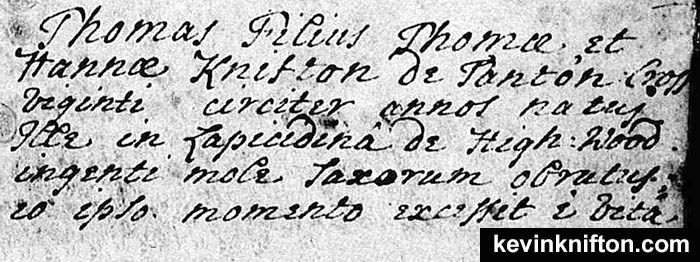 Thomas Filius Thomæ et
Hannæ Knifton de Tanton Cross
viginti circiter annos natus
Ille in Lapicidinâ de High-Wood
ingenti mole Saxorum obrutus,
eo ipso momento excessit è vitâ
kevinknifton.com